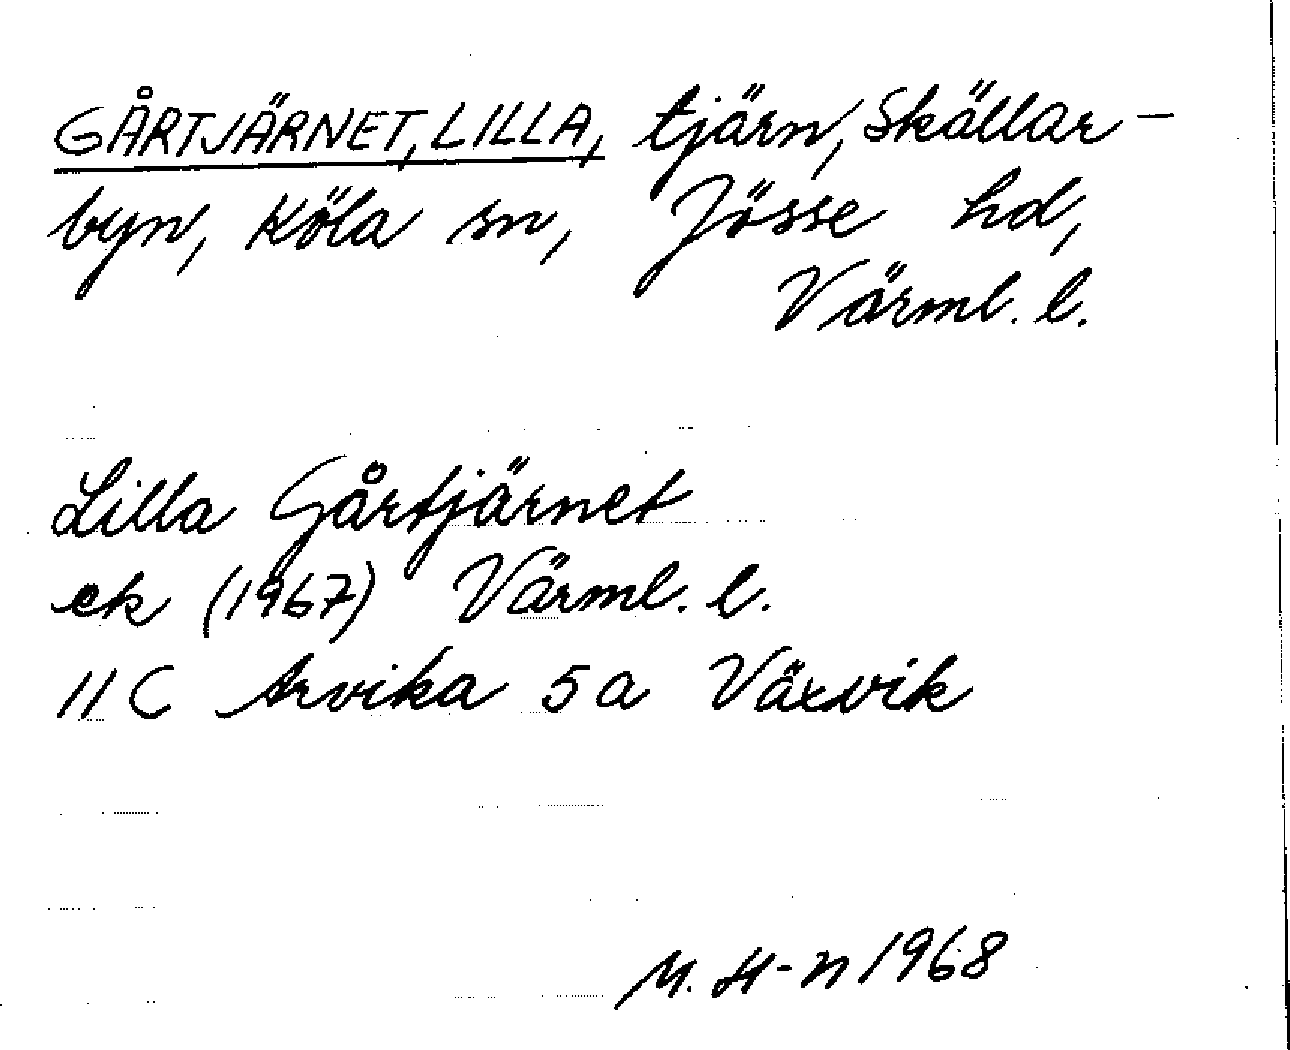 GÅRTJÄRNET, LILLA, tjärn, Skällar-
byn, Köla sn, Jösse hd,
Värml. l.
Lilla Gårtjärnet
ek (1967) Värml. l.
11 C Arvika 5 a Växvik
M. H-n 1968